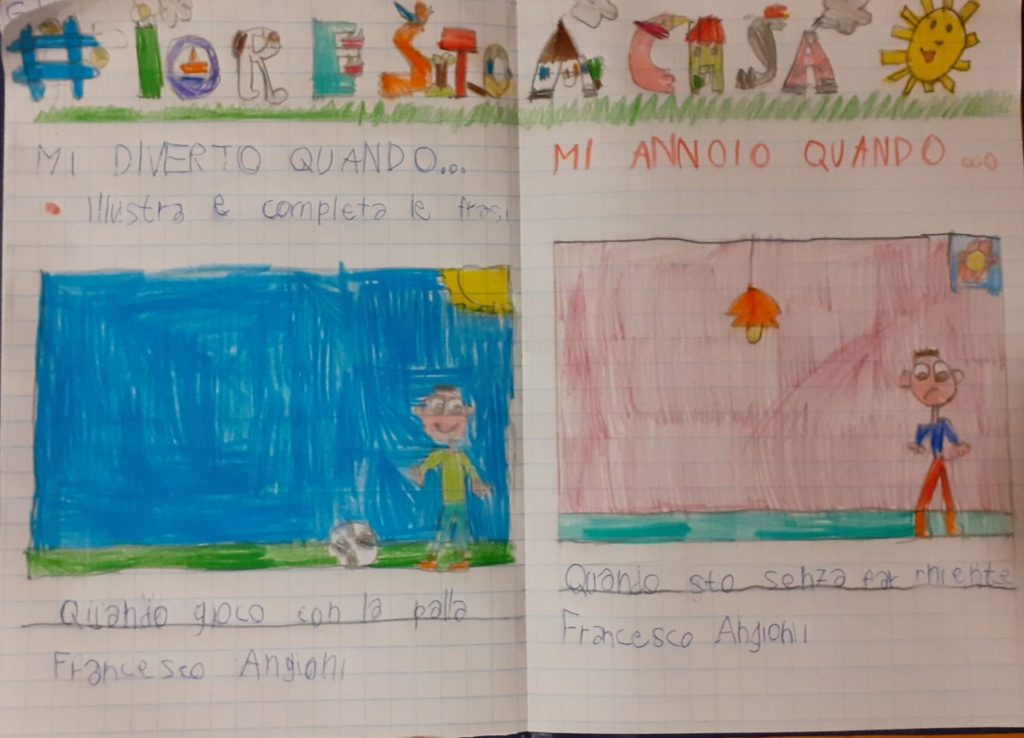 #IORESTOACASA
MI DIVERTO QUANDO...
• Illustra e completa le frasi
Quando gioco con la palla
Francesco Angioni
MI ANNOIO QUANDO...
Quando sto senza far niente
Francesco Angioni